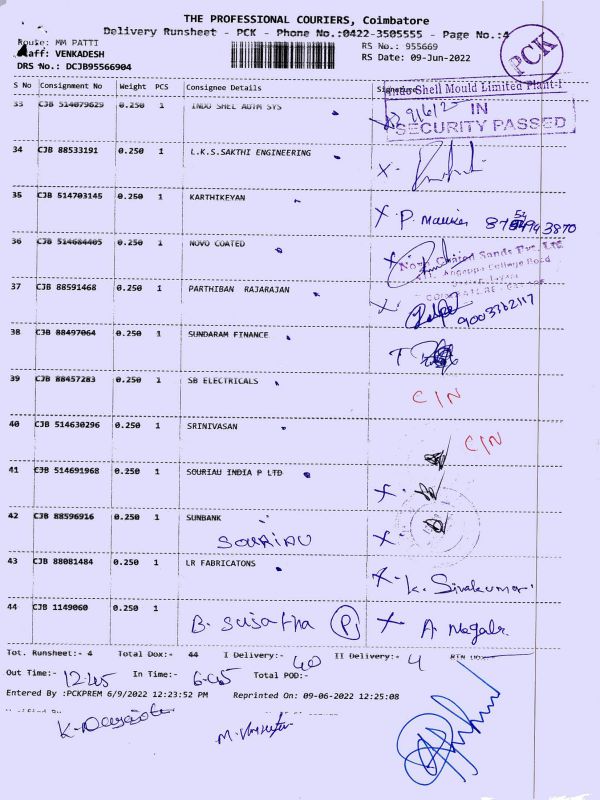 THE PROFESSIONAL COURIERS, Coimbatore
Delivery Runsheet - PCK - Phone No.:0422-3505555 - Page No.:4
Route: MM PATTI RS No.: 955669
Staff: VENKADESH RS Date: 09-Jun-2022
DRS No.: DCJB95566904
PCK
S No Consignment No Weight PCS Consignee Details Signature
Indo Shell Mould Limited Plant-I
33 CJB 514079629 0.250 1 INDO SHEL AUTM SYS
IN
SECURITY PASSED
34 CJB 88533191 0.250 1 L.K.S.SAKTHI ENGINEERING
35 CJB 514703145 0.250 1 KARTHIKEYAN
36 CJB 514684405 0.250 1 NOVO COATED
Coated Sands Pvt. Ltd
37 CJB 88591468 0.250 1 PARTHIBAN RAJARAJAN
9003762117
38 CJB 88497064 0.250 1 SUNDARAM FINANCE
39 CJB 88457283 0.250 1 SB ELECTRICALS
C/N
40 CJB 514630296 0.250 1 SRINIVASAN
C/N
41 CJB 514691968 0.250 1 SOURIAU INDIA P LTD
42 CJB 88596916 0.250 1 SUNBANK
SOURIAU
43 CJB 88081484 0.250 1 LR FABRICATONS
K. Sivakumar
44 CJB 1149060 0.250 1
B. Sujatha P
Tot. Runsheet:- 4 Total Dox:- 44 I Delivery:- 40 II Delivery:- 4
Out Time:- 12-45 In Time:- 6-45 Total POD:-
Entered By :PCKPREM 6/9/2022 12:23:52 PM Reprinted On: 09-06-2022 12:25:08